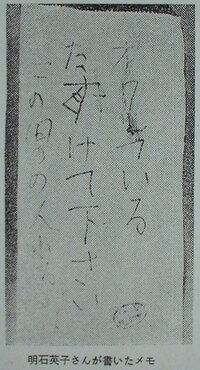 オワれている
たすけて下さい
この男の人わるい人
明石英子さんが書いたメモ